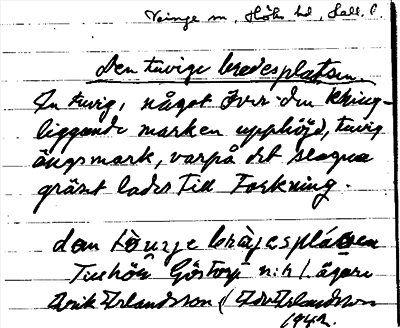 Veinge sn, Höks hd, Hall. l.
Den tuvige bredesplatsen.
En tuvig, något över den kring-
liggande marken upphöjd, tuvig
ängsmark, varpå det slagna
gräset lades till torkning.
den
Tillhör Göstorp n:r 1. ägare
Erik Erlandsson (Edv. Erlandsson
1942.